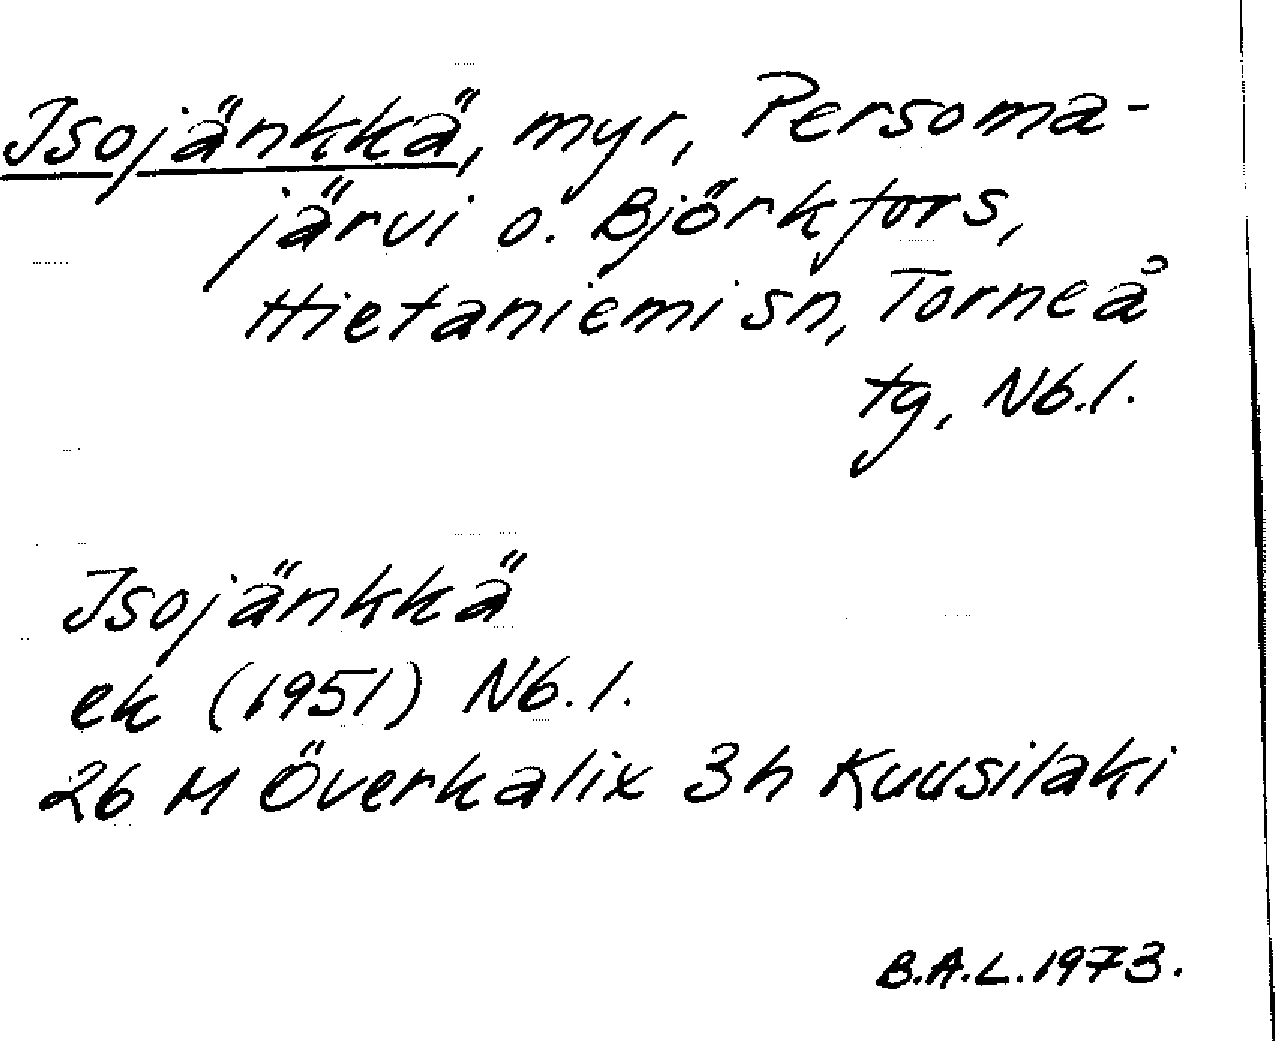 Isojänkkä, myr, Persoma-
järvi o. Björkfors,
Hietaniemi sn, Torneå
tg, Nb.l.
Isojänkkä
ek (1951) Nb.l.
26 M Överkalix 3h Kuusilaki
B.A.L. 1973.